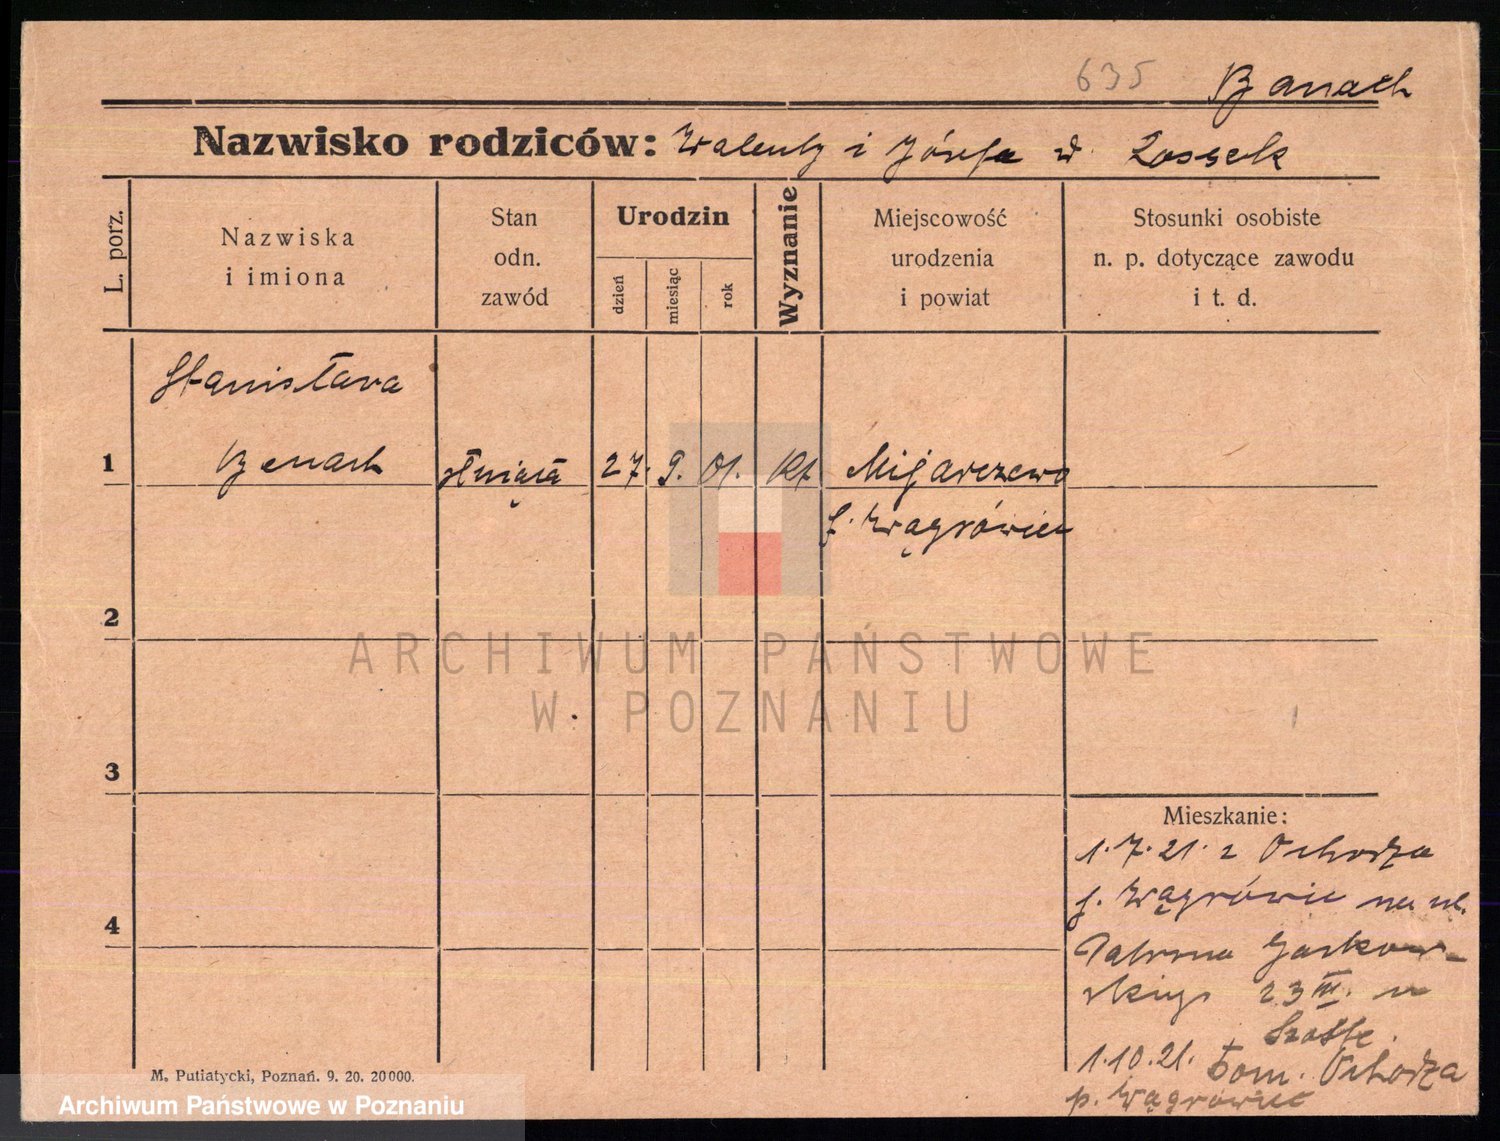 635 Banach
Nazwisko rodziców: Walenty i Józefa d. Lossek
L. porz.
Nazwiska
i imiona
Stan
odn.
zawód
Urodzin
dzień
miesiąc
rok
Wyznanie
Miejscowość
urodzenia
i powiat
Stosunki osobiste
n. p. dotyczące zawodu
i t. d.
Stanisława
1 Banach służąca 27. 9. 01. kt Mijarczewo
p. Wągrówiec
2
ARCHIWUM PAŃSTWOWE
W POZNANIU
3
Mieszkanie:
1.7.21. z Ochodza
p. Wągrówiec na ul.
4
Patrona Jackow-
skiego 23 III. u
1.10.21. Dom. Ochodza
p. Wągrowiec
M. Putiatycki, Poznań. 9. 20. 20000.
Archiwum Państwowe w Poznaniu